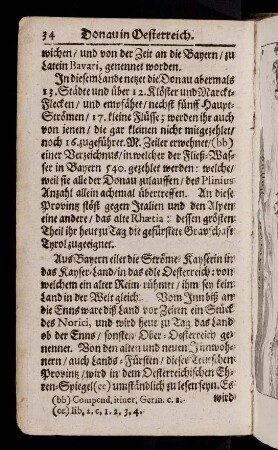 34 Donau in Oesterreich.
wichen / und von der Zeit an die Bayern / zu
Latein Bavari, genennet worden.
In diesem Lande netzet die Donau abermals
13. Städte und über 12. Klöster und Marckt-
Flecken / und empfähet / nechst fünff Haupt-
Strömen / 17. kleine Flüsse; werden ihr auch
von jenen / die gar kleinen nicht mitgezehlet /
noch 16. zugeführet. M. Zeiler erwehnet / (bb)
einer Verzeichnus / in welcher der Fließ-Was-
ser in Bayern 540. gezehlet werden: welche /
weil sie alle der Donau zulauffen / des Plinius
Anzahl allein achtmal übertreffen. An diese
Provintz stöst gegen Italien und den Alpen
eine andere / das alte Rhætia: dessen grösten
Theil ihr heut zu Tag die gefürstete Gravschaft
Tyrol zugeeignet.
Aus Bayern eilet die Ströme-Kayserin in
das Kayser-Land / in das edle Oesterreich: von
welchem ein alter Reim rühmet / ihm sey kein
Land in der Welt gleich. Vom Inn biß an
die Enns ware diß Land vor Zeiten ein Stück
des Norici, und wird heut zu Tag das Land
ob der Enns / sonsten Ober-Oesterreich ge-
nennet. Von den alten und neuen Innwoh-
nern / auch Lands-Fürsten / dieser Teutschen
Provintz / wird in dem Oesterreichischen Eh-
ren-Spiegel (cc) umständlich zu lesen seyn. Es
(bb) Compend. itiner. Germ. c. 1. wird
(cc) lib. 1. c. 1. 2. 3. 4.